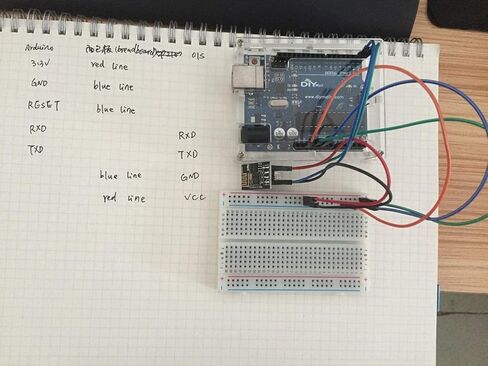 Arduino 面包板(breadboard) 01S
3.3V red line
GND blue line
RESET blue line
RXD RXD
TXD TXD
blue line GND
red line VCC
DIY